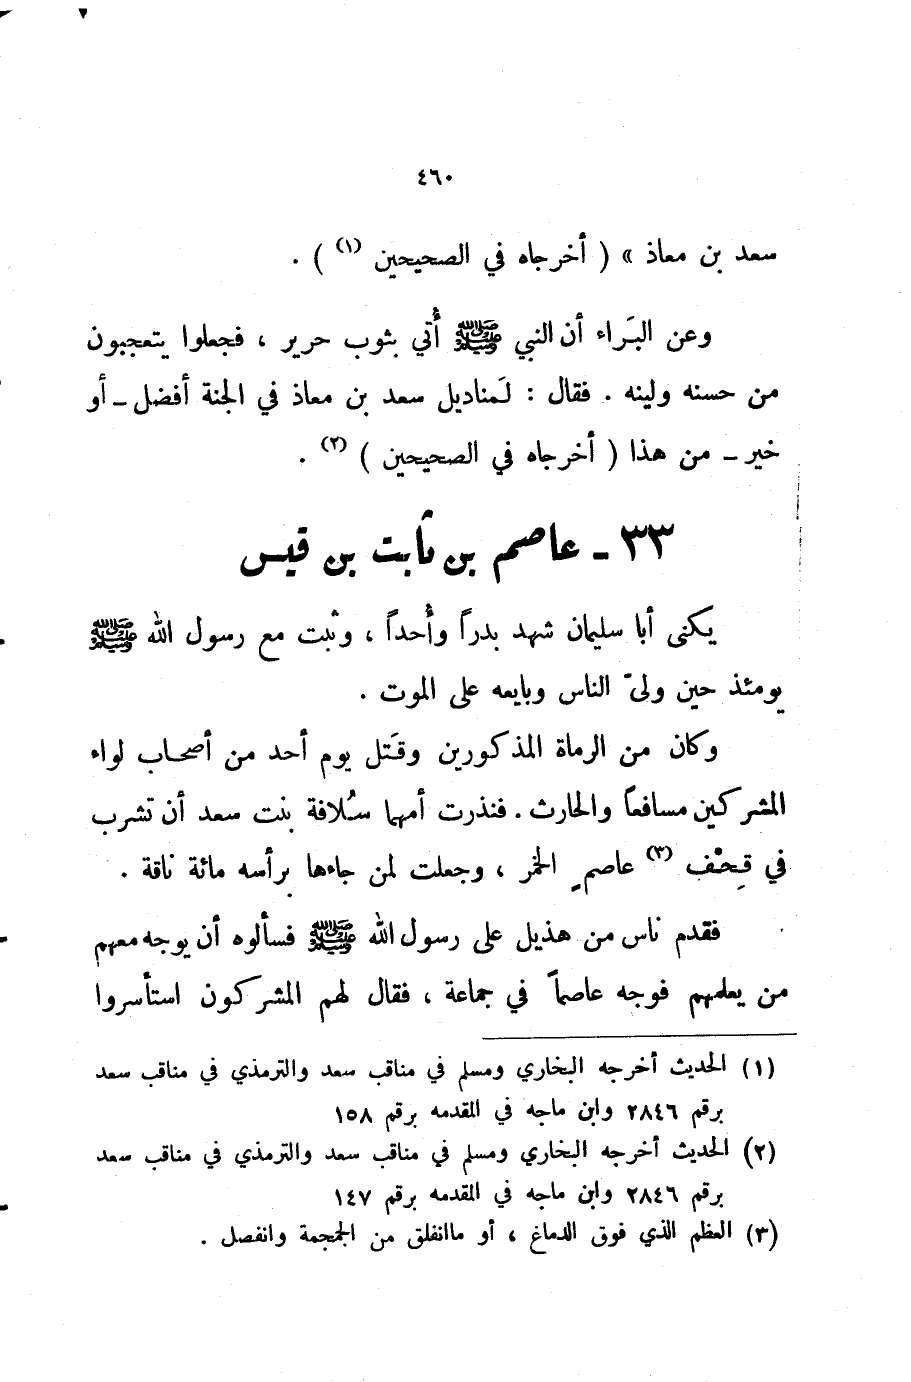 ٤٦٠
سعد بن معاذ » ( أخرجاه في الصحيحين (١) ) .
وعن البَراء أن النبي ﷺ أُتي بثوب حرير ، فجعلوا يتعجبون
من حسنه ولينه . فقال : لَمناديل سعد بن معاذ في الجنة أفضل ـ أو
خير ـ من هذا ( أخرجاه في الصحيحين ) (٢) .
٣٣ ـ عاصم بن ثابت بن قيس
يكنى أبا سليمان شهد بدراً وأُحداً ، وثبت مع رسول الله ﷺ
يومئذ حين ولىّ الناس وبايعه على الموت .
وكان من الرماة المذكورين وقَتل يوم أحد من أصحاب لواء
المشركين مسافعاً والحارث . فنذرت أمهما سُلافة بنت سعد أن تشرب
في قِحْف (٣) عاصمٍ الخمر ، وجعلت لمن جاءها برأسه مائة ناقة .
فقدم ناس من هذيل على رسول الله ﷺ فسألوه أن يوجه معهم
من يعلمهم فوجه عاصماً في جماعة ، فقال لهم المشركون استأسروا
(١) الحديث أخرجه البخاري ومسلم في مناقب سعد والترمذي في مناقب سعد
برقم ٢٨٤٦ وابن ماجه في المقدمه برقم ١٥٨
(٢) الحديث أخرجه البخاري ومسلم في مناقب سعد والترمذي في مناقب سعد
برقم ٢٨٤٦ وابن ماجه في المقدمه برقم ١٤٧
(٣) العظم الذي فوق الدماغ ، أو ماانفلق من الجمجمة وانفصل .